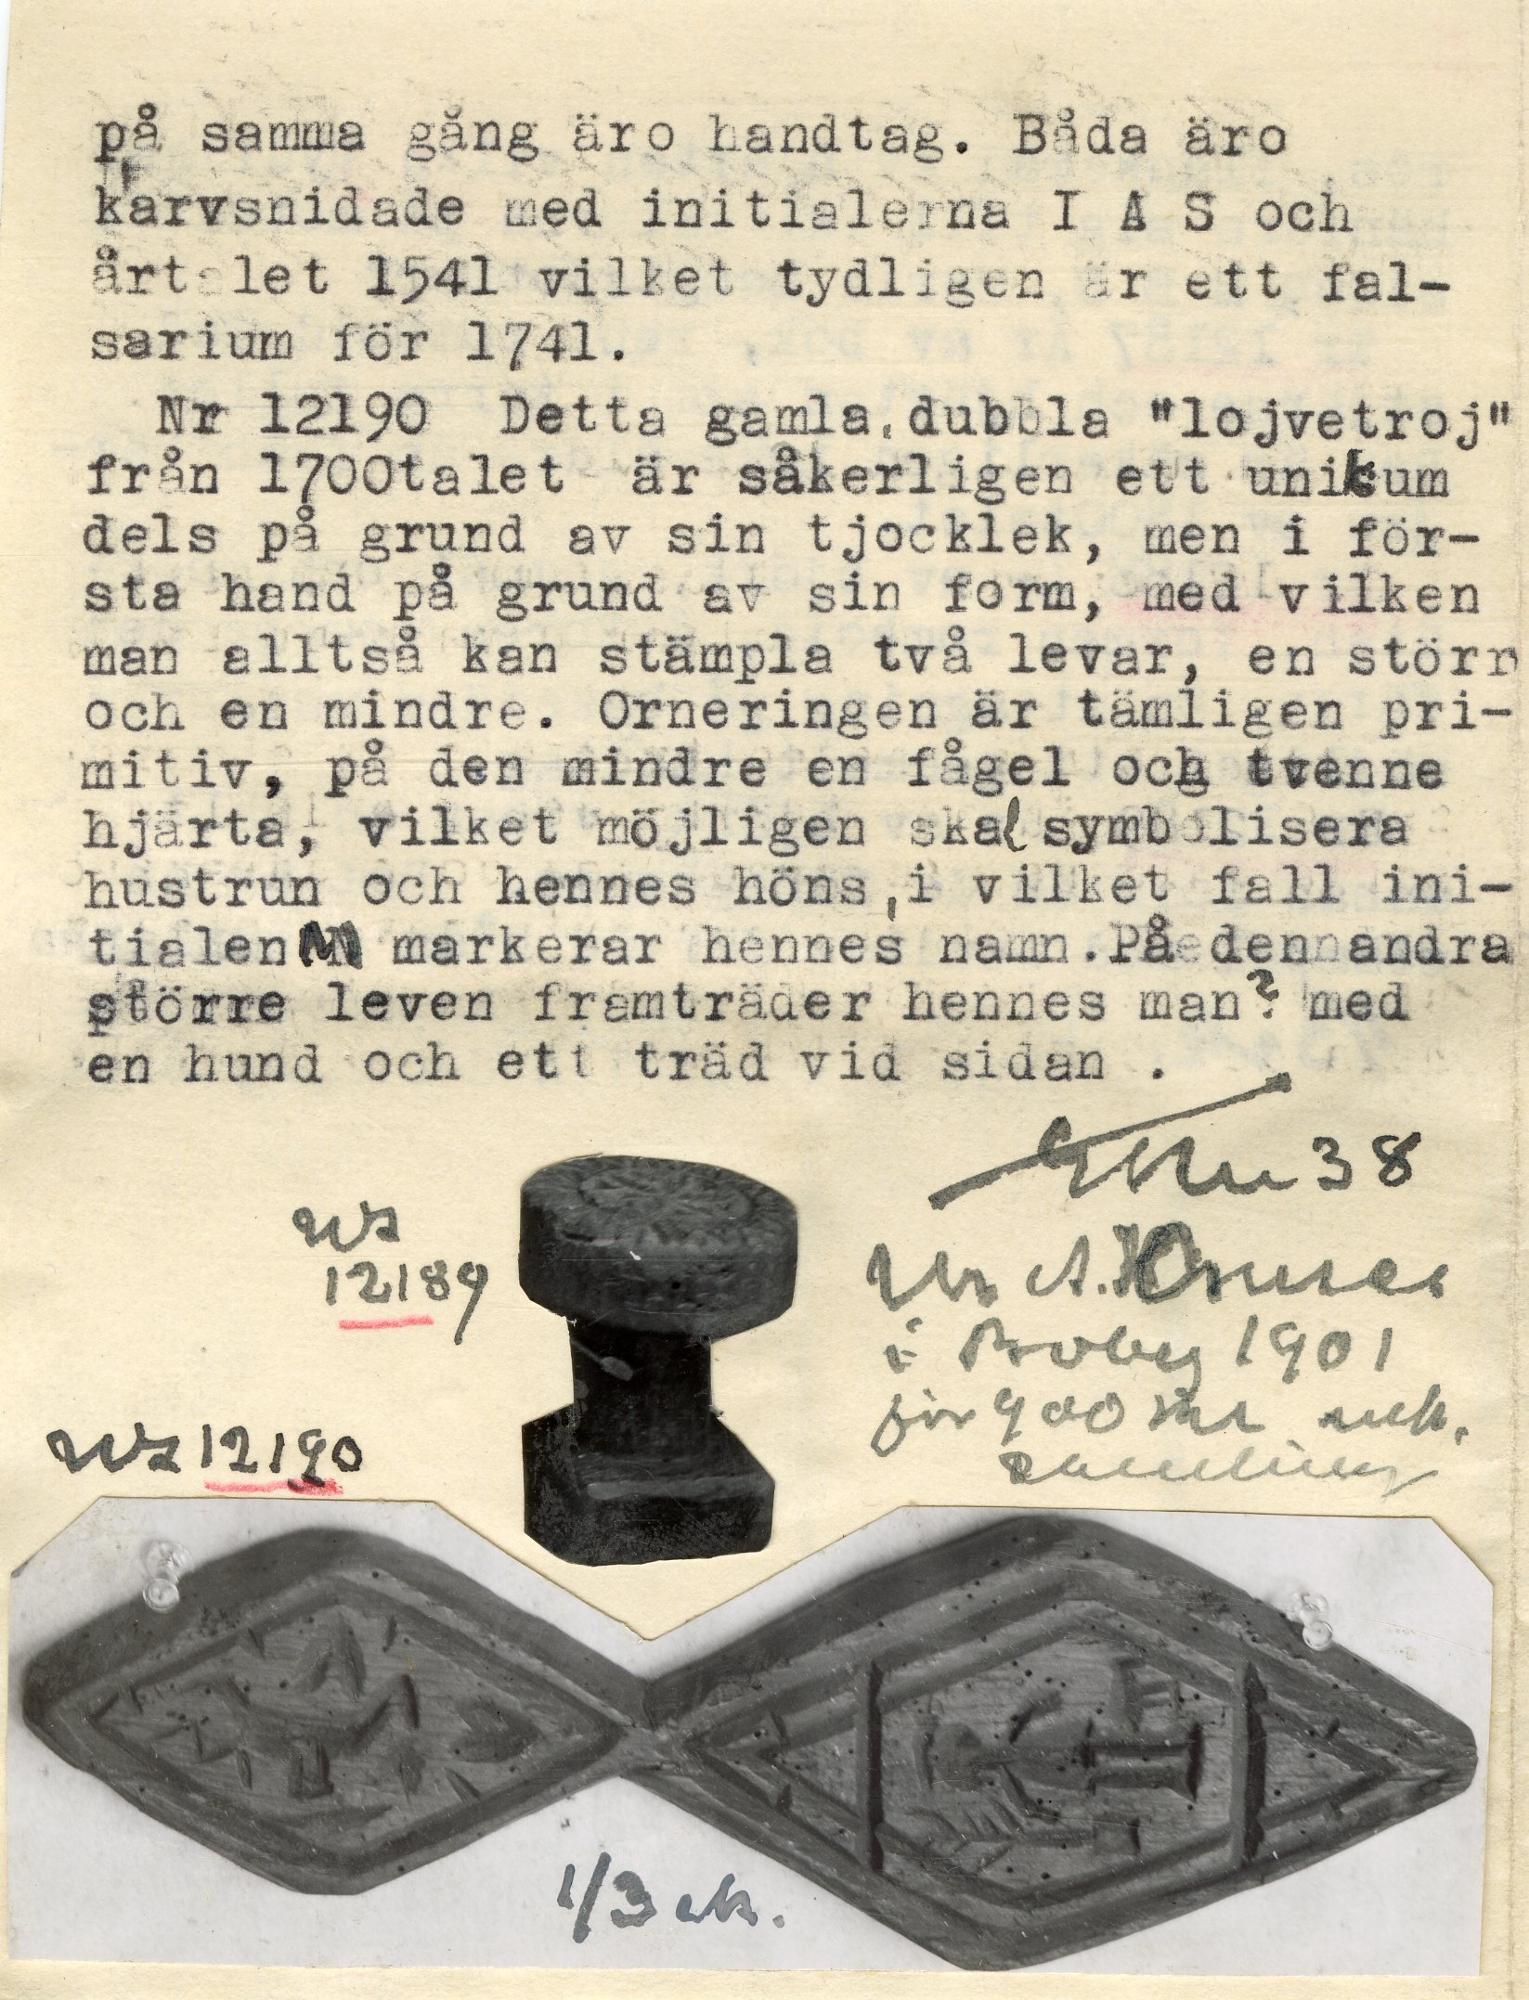 på samma gång äro handtag. Båda äro
karvsnidade med initialerna I A S och
årtalet 1541 vilket tydligen är ett fal-
sarium för 1741.
Nr 12190 Detta gamla, dubbla "lojvetroj"
från 1700talet är såkerligen ett unikum
dels på grund av sin tjocklek, men i för-
sta hand på grund av sin form, med vilken
man alltså kan stämpla två levar, en störr
och en mindre. Orneringen är tämligen pri-
mitiv, på den mindre en fågel och tvenne
hjärta, vilket möjligen skal symbolisera
hustrun och hennes höns, i vilket fall ini-
tialen M markerar hennes namn. På den andra
större leven framträder hennes man? med
en hund och ett träd vid sidan .
38
12189
i Broby 1901
för 900
12190
1/3